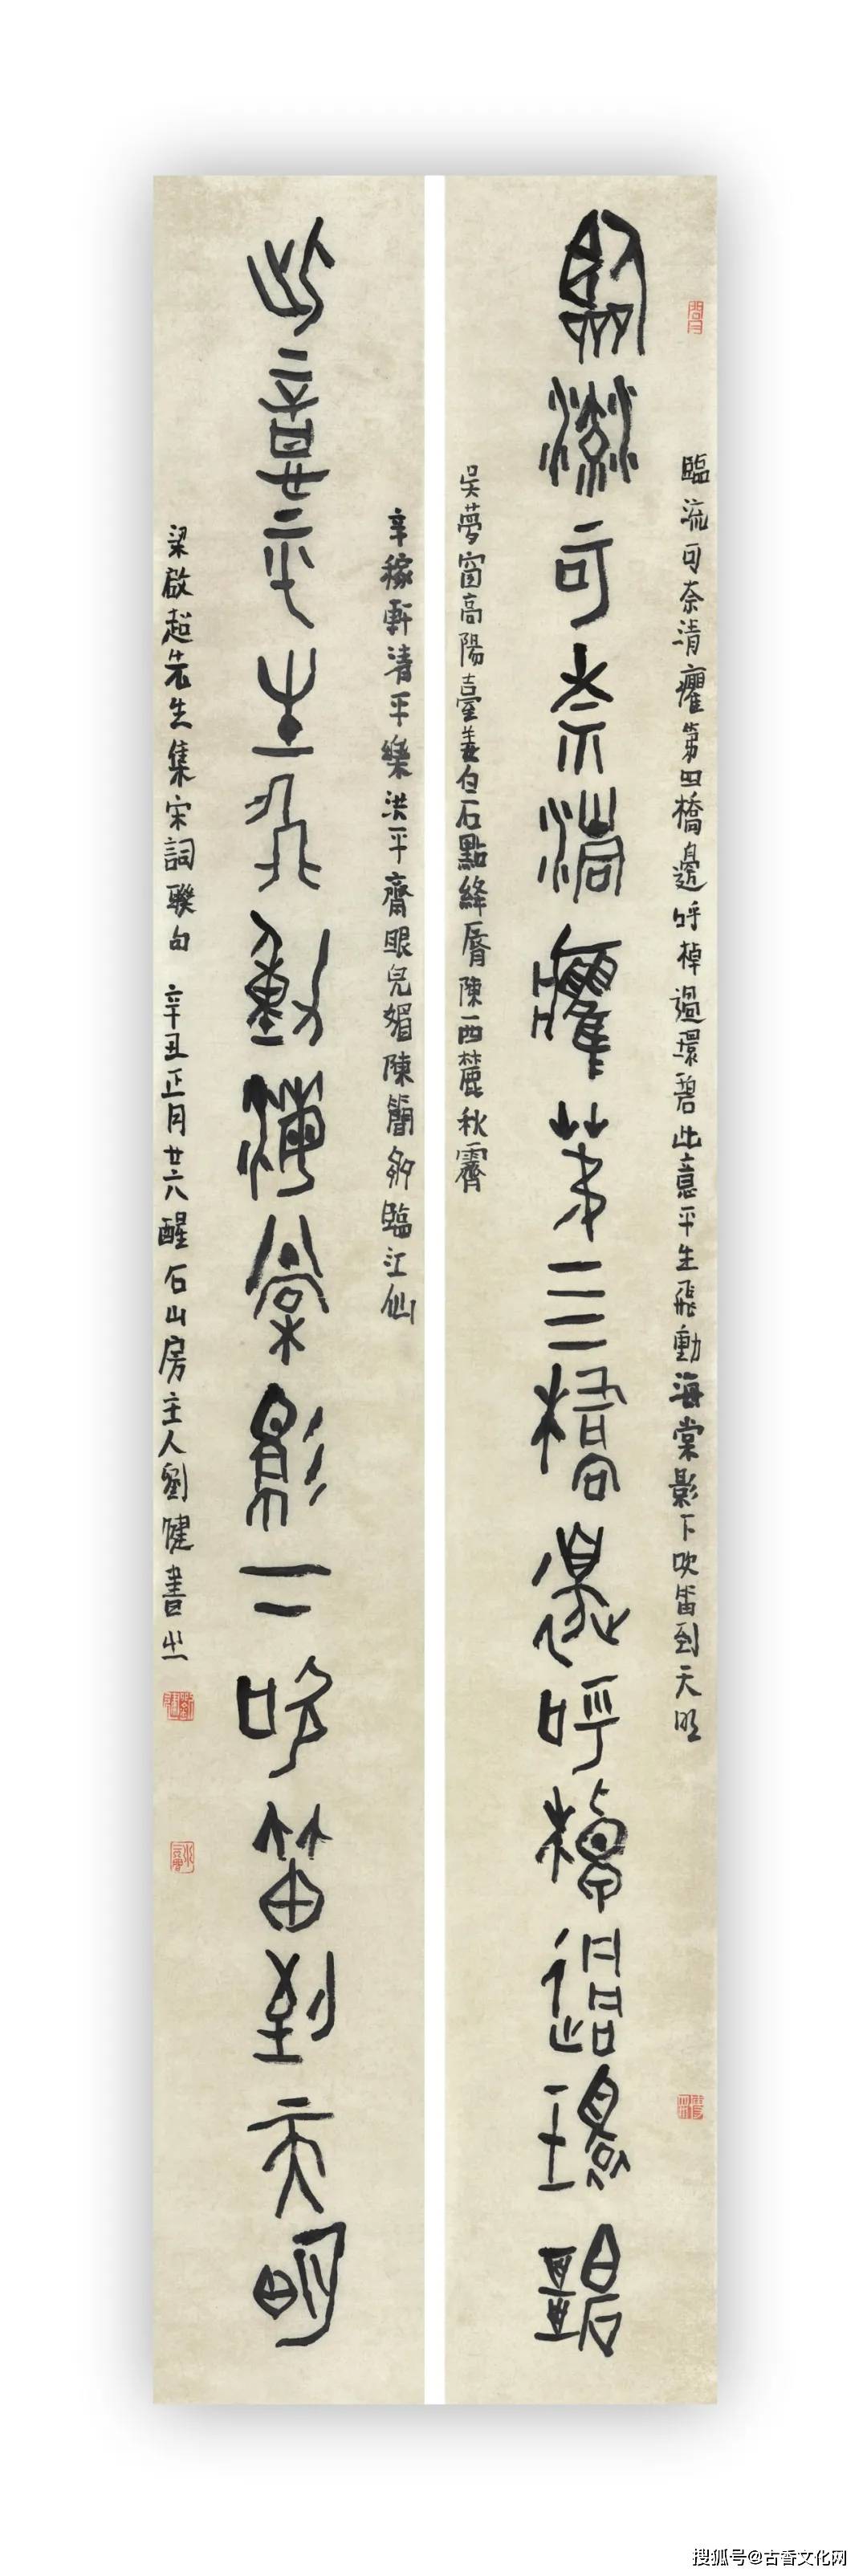 臨流可奈清癯第三橋邊呼棹過環碧
臨流可奈清癯第四橋邊呼棹過環碧此意平生飛動海棠影下吹笛到天明
吳夢窗高陽臺姜白石點絳唇陳西麓秋霽
此意平生飛動海棠影下吹笛到天明
辛稼軒清平樂洪平齋眼兒媚陳簡齋臨江仙
梁啟超先生集宋詞聯句 辛丑正月廿六醒石山房主人劉健書
搜狐号@古香文化网